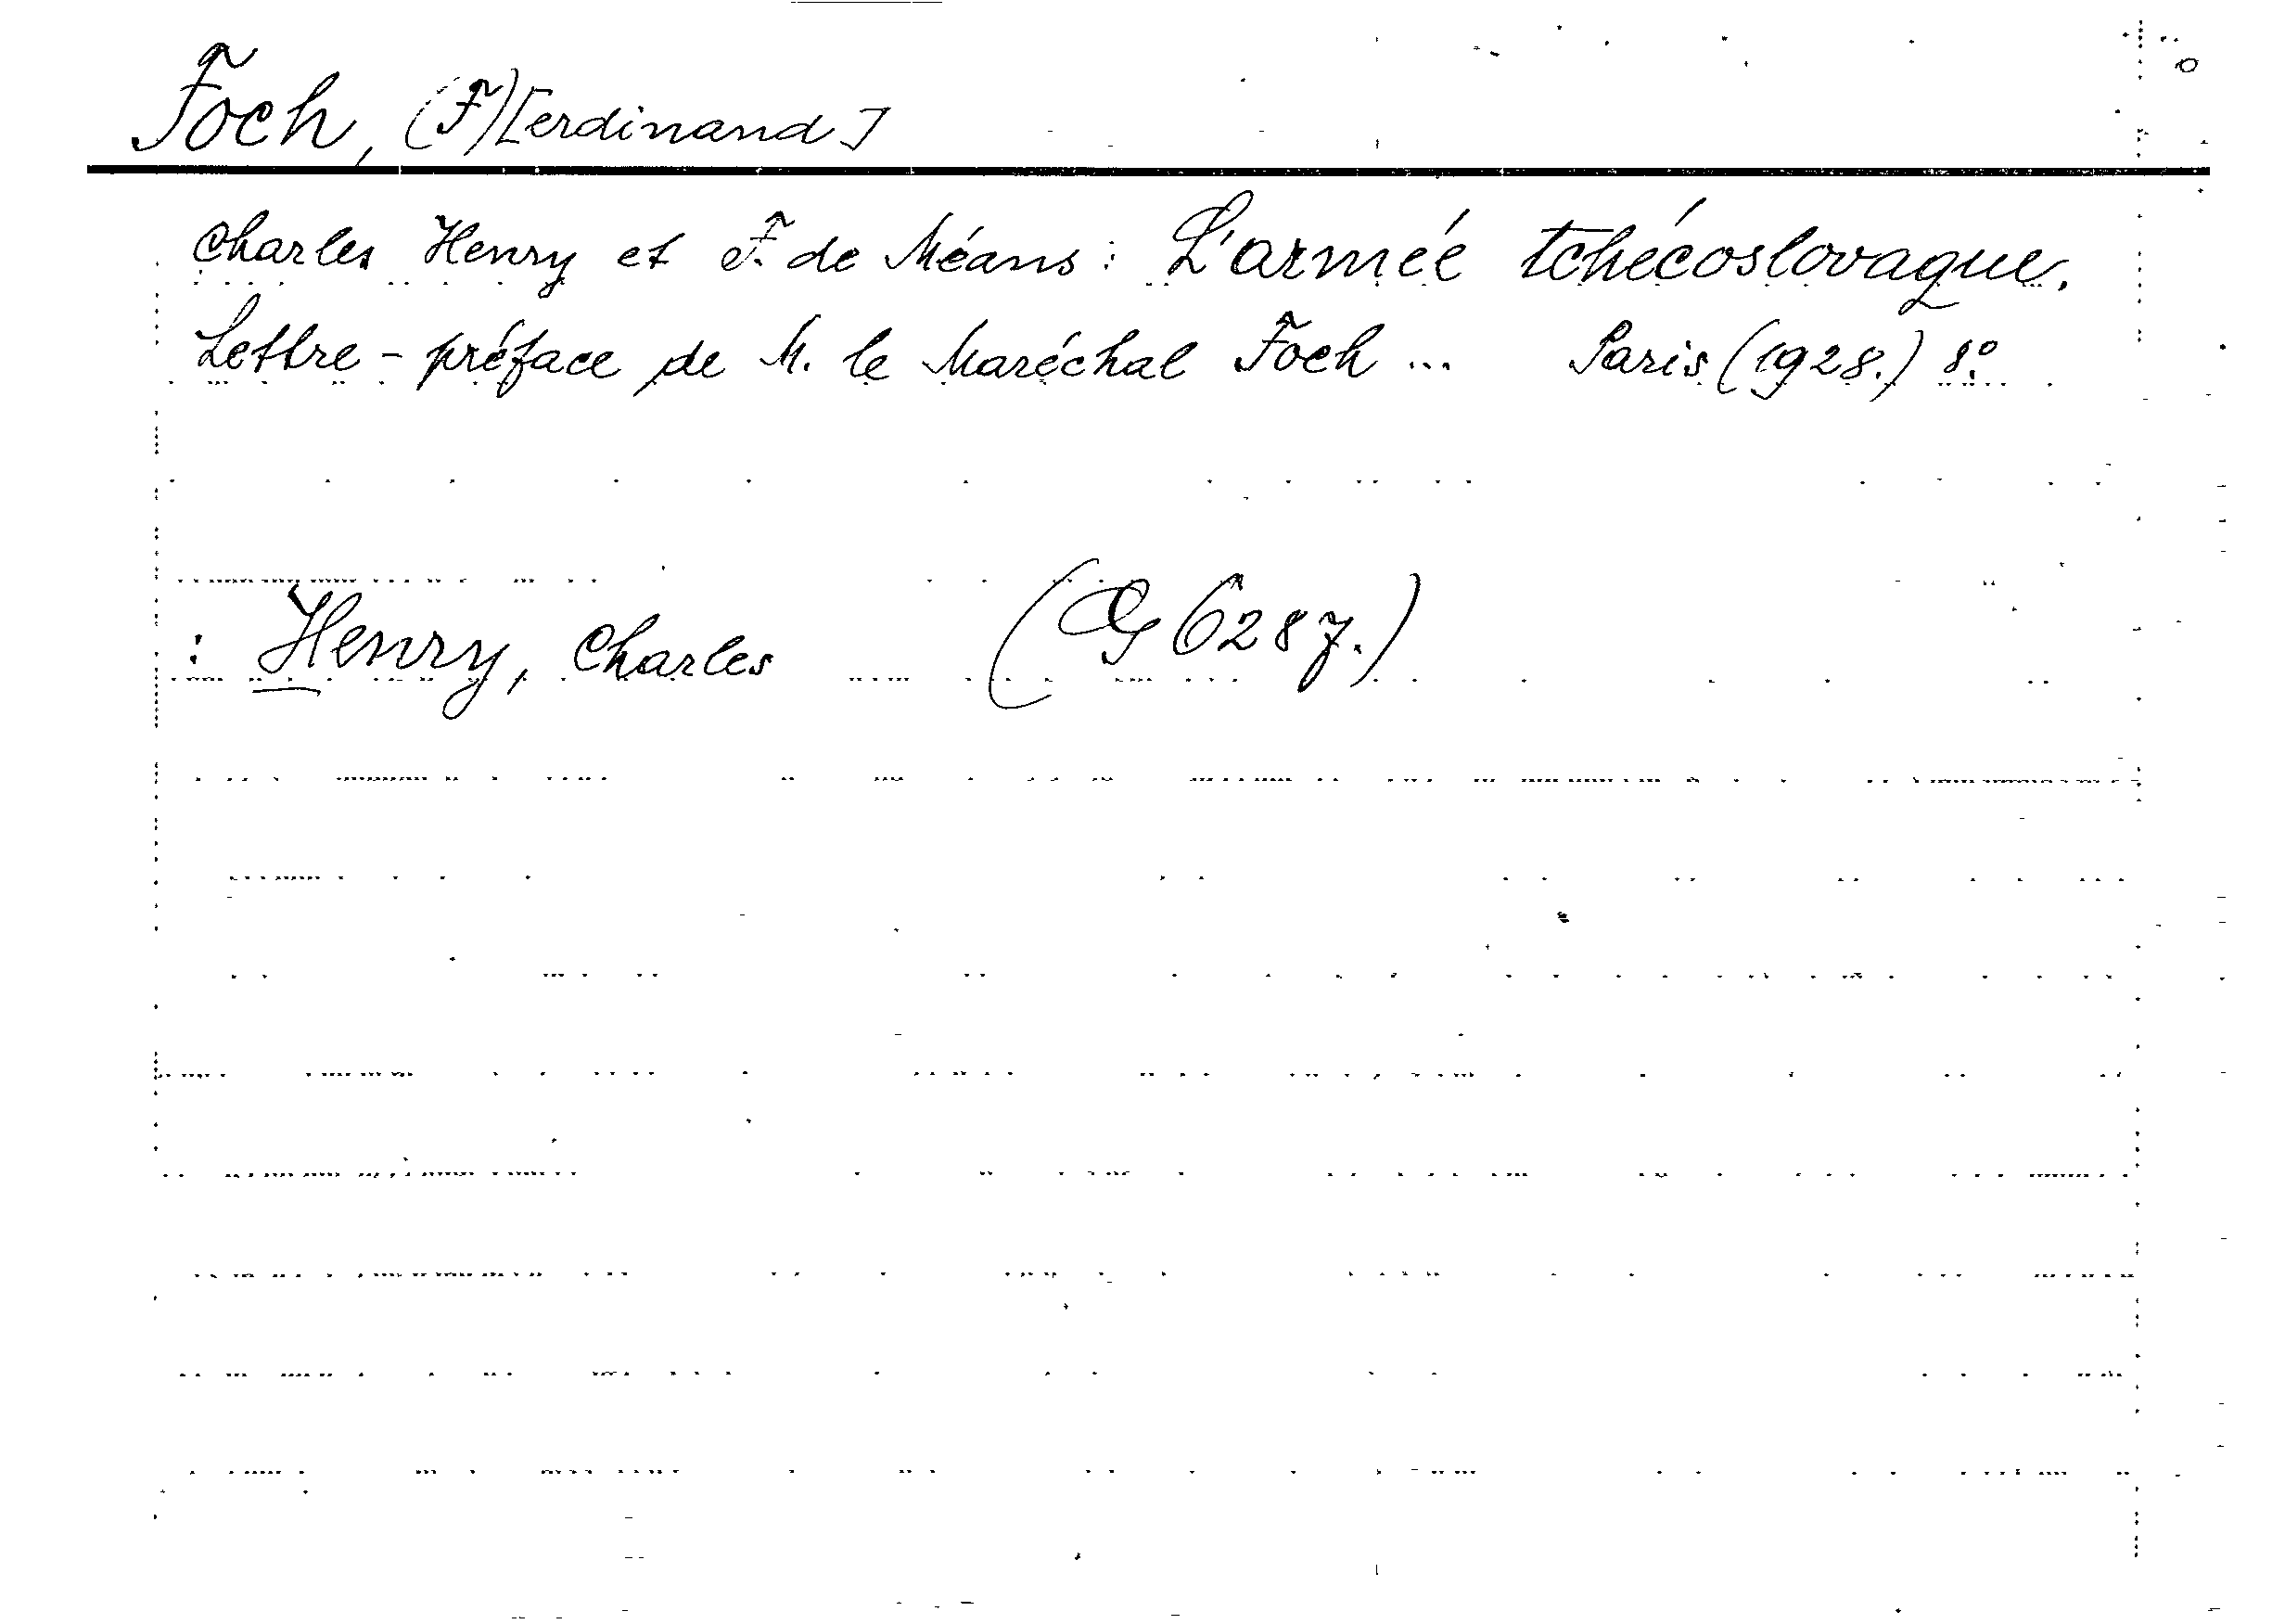 Foch, (F)[erdinand]
Charles Henry et F. de Méans: L'armée tchécoslovaque.
Lettre-préface de M. le Maréchal Foch ... Paris (1928.) 8°
: Henry, Charles (G 6287.)